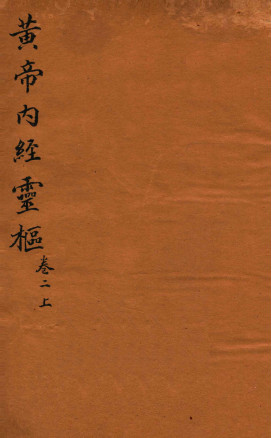 黃帝内經靈樞
卷二上